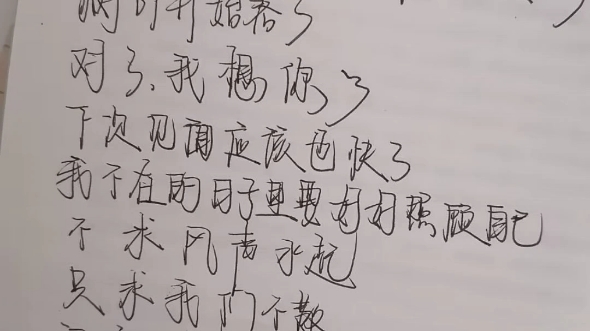 开始落了
对了,我想你了
下次见面应该也快了
我不在的日子里要好好照顾自己
不求风声水起
只求我们不散